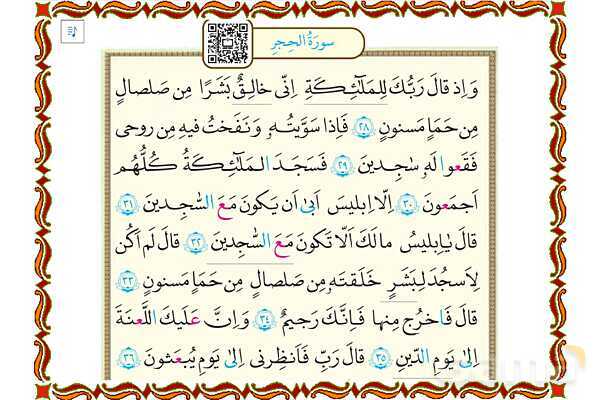 سورَةُ الحِجرِ
وَ اِذ قالَ رَبُّكَ لِلمَلٰئِكَةِ اِنّی خالِقٌ بَشَرًا مِن صَلصالٍ
مِن حَمَاٍ مَسنونٍ ﴿٢٨﴾ فَاِذا سَوَّیتُهو وَ نَفَختُ فیهِ مِن روحی
فَقَعوا لَهو سٰجِدینَ ﴿٢٩﴾ فَسَجَدَ المَلٰئِكَةُ كُلُّهُم
اَجمَعونَ ﴿٣٠﴾ اِلّا اِبلیسَ اَبیٰ اَن یَكونَ مَعَ السّٰجِدینَ ﴿٣١﴾
قالَ یٰاِبلیسُ ما لَكَ اَلّا تَكونَ مَعَ السّٰجِدینَ ﴿٣٢﴾ قالَ لَم اَكُن
لِاَسجُدَ لِبَشَرٍ خَلَقتَهو مِن صَلصالٍ مِن حَمَاٍ مَسنونٍ ﴿٣٣﴾
قالَ فَاخرُج مِنها فَاِنَّكَ رَجیمٌ ﴿٣٤﴾ وَ اِنَّ عَلَیكَ اللَّعنَةَ
اِلیٰ یَومِ الدّینِ ﴿٣٥﴾ قالَ رَبِّ فَاَنظِرنی اِلیٰ یَومِ یُبعَثونَ ﴿٣٦﴾